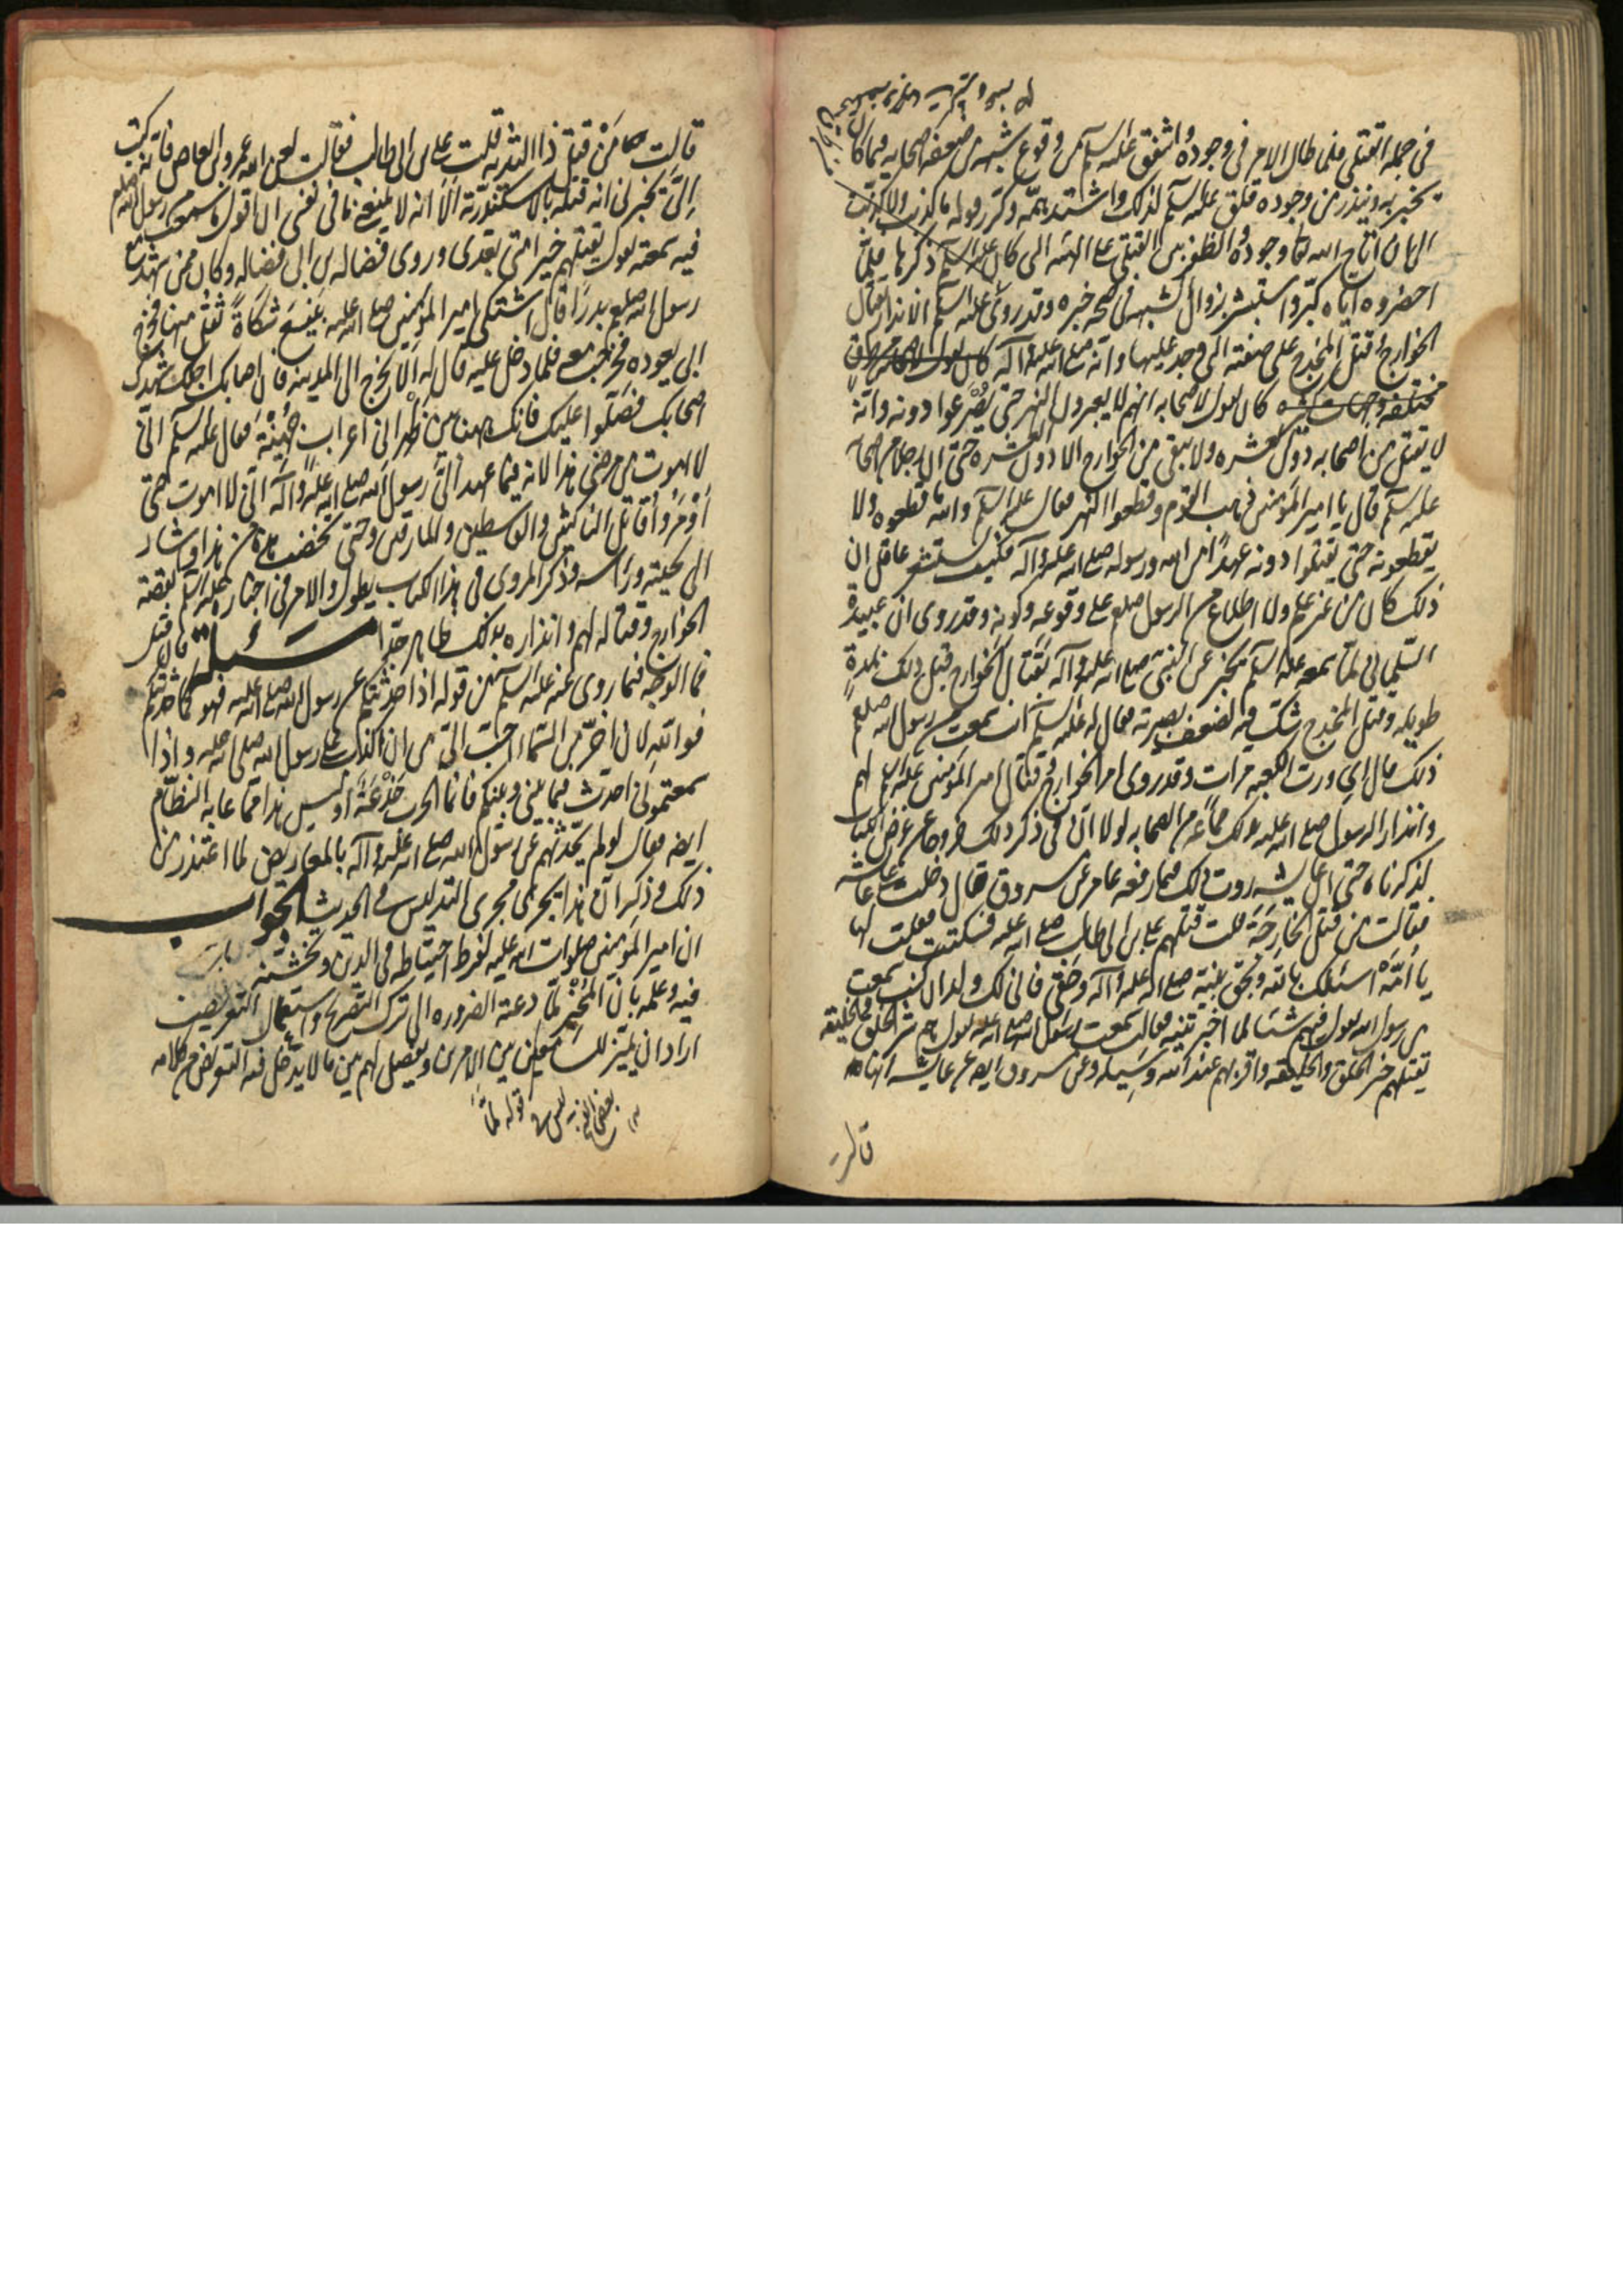 في جملة القتلى فلما طال الامر في وجوده واشفق عليه السلم من وقوع شبهة من ضعفة اصحابه فيما كان
يخبر به وينذر من وجوده قلق عليه السلم لذلك واشتد همه وكرر قوله ما كذبت ولا كذبت
الى ان اتاح الله لنا وجوده والظفر بين القتلى على الهيئة التي كان عليه السلم ذكرها فلما
احضروه اياه كبر واستبشر بزوال الشبهة في صحة خبره وقد روى عليه السلم الانذار بقتال
الخوارج وقتل المخدج على صفته التي وجد عليها وانه صلى الله عليه وآله
كان يقول لاصحابه انهم لا يعبرون النهر حتى يصرعوا دونه وانه
لا يقتل من اصحابه دون العشرة ولا يبقى من الخوارج الا دون العشرة حتى ان رجلا من اصحابه
عليه السلم قال يا امير المؤمنين ذهب القوم وقطعوا النهر فقال عليه السلم والله ما قطعوه ولا
يقطعونه حتى يقتلوا دونه عهدا من الله ورسوله صلى الله عليه وآله فكيف يستشعر عاقل ان
ذلك كان من غير علم ولا اطلاع من الرسول صلعم على وقوعه وكونه وقد روى ان عبيدة
السلماني لما سمعه عليه السلم يخبر عن النبي صلى الله عليه وآله بقتال الخوارج قبل ذلك بمدة
طويلة وقتل المخدج شك فيه لضعف بصيرته فقال له عليه السلم انت سمعت من رسول الله صلعم
ذلك فقال اي ورب الكعبة مرات وقد روى امر الخوارج وقتال امير المؤمنين عليه السلم لهم
وانذار الرسول صلى الله عليه بذلك جماعة من الصحابة لولا ان في ذكر ذلك خروجا عن غرض الكتاب
لذكرناه حتى ان عايشة روت ذلك فيما رفعه عامر عن مسروق قال دخلت على عايشة
فقالت من قتل الخارجة قلت قتلهم علي بن ابي طالب صلى الله عليه فسكتت فقلت لها
يا امه اسئلك بالله وبحق نبيه صلى الله عليه وآله وحقي فاني لك ولد ان كنت سمعت
من رسول الله يقول فيهم شيئا لما اخبرتنيه فقالت سمعت رسول الله صلى الله عليه يقول هم شر الخلق والخليقة
يقتلهم خير الخلق والخليقة واقربهم عند الله وسيلة وعن مسروق ايضا عن عايشة انها
قالت
قالت من قتل ذا الثدية قلت علي بن ابي طالب فقالت لعن الله عمرو بن العاص فانه كتب
الي يخبرني انه قتله بالاسكندرية الا انه لا يمنعني ما في نفسي ان اقول ما سمعت من رسول الله صلعم
فيه سمعته يقول يقتلهم خير امتي بعدي وروى فضالة بن ابي فضالة وكان ممن شهد مع
رسول الله صلعم بدرا قال اشتكى امير المؤمنين صلى الله عليه بينبع شكاة ثقل منها فخرج
ابي يعوده فخرجت معه فلما دخل عليه قال له الا تخرج الى المدينة فان اصابك اجلك شهدك
اصحابك فصلوا عليك فانك ههنا بين ظهراني اعراب جهينة فقال عليه السلم اني
لا اموت من مرضي هذا لانه فيما عهد الي رسول الله صلى الله عليه وآله اني لا اموت حتى
اؤمر واقاتل الناكثين والقاسطين والمارقين وحتى تخضب هذه من هذا واشار
الى لحيته ورأسه وذكر المروي في هذا الكتاب يطول والامر في اخباره عليه السلم بقصة
الخوارج وقتاله لهم وانذاره بذلك ظاهر جدا مسئلة فان قيل
فما الوجه فيما روى عنه عليه السلم من قوله اذا حدثتكم عن رسول الله صلى الله عليه فهو كما حدثتكم
فوالله لان اخر من السماء احب الي من ان اكذب على رسول الله صلى الله عليه واذا
سمعتموني احدث فيما بيني وبينكم فانما الحرب خدعة او ليس هذا مما عابه النظام
ايضا فقال لو لم يحدثهم عن رسول الله صلى الله عليه وآله بالمعاريض لما اعتذر من
ذلك وذكر ان هذا يجري مجرى التدليس في الحديث الجواب
ان امير المؤمنين صلوات الله عليه لفرط احتياطه في الدين وتخشنه
فيه وعلمه بان المخبر ربما دعته الضرورة الى ترك التصريح واستعمال التعريض
اراد ان يميز للسامعين بين الامرين ويفصل لهم بين ما لا يدخل فيه التعريض من كلامه